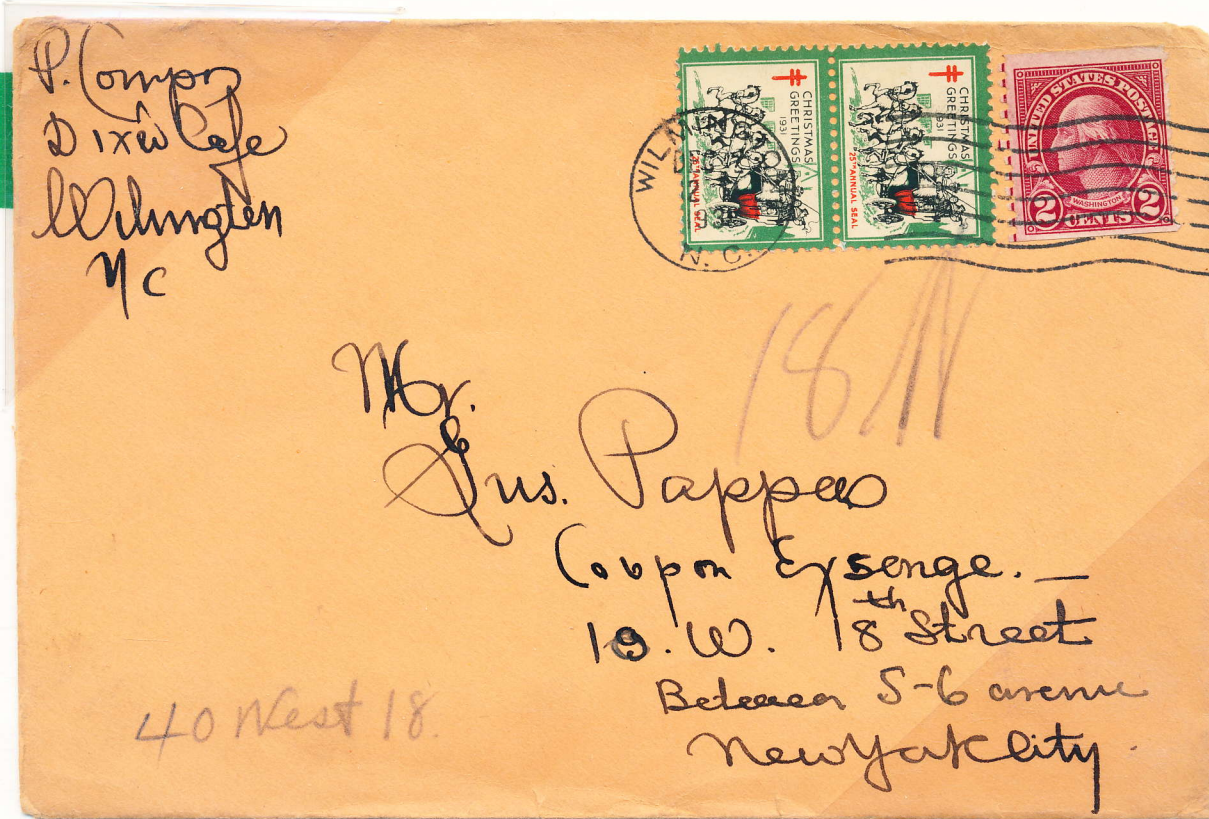 P. Compos
Dixie Cafe
Wilmington
N C
CHRISTMAS
GREETINGS
1931
25TH ANNUAL SEAL
CHRISTMAS
GREETINGS
1931
25TH ANNUAL SEAL
UNITED STATES POSTAGE
WASHINGTON
2 CENTS 2
N. C.
18 W
Mr.
Gus. Pappas
Coupon Exsenge. —
19. W. 18th Street
Between 5-6 avenue
New York City.
40 West 18.